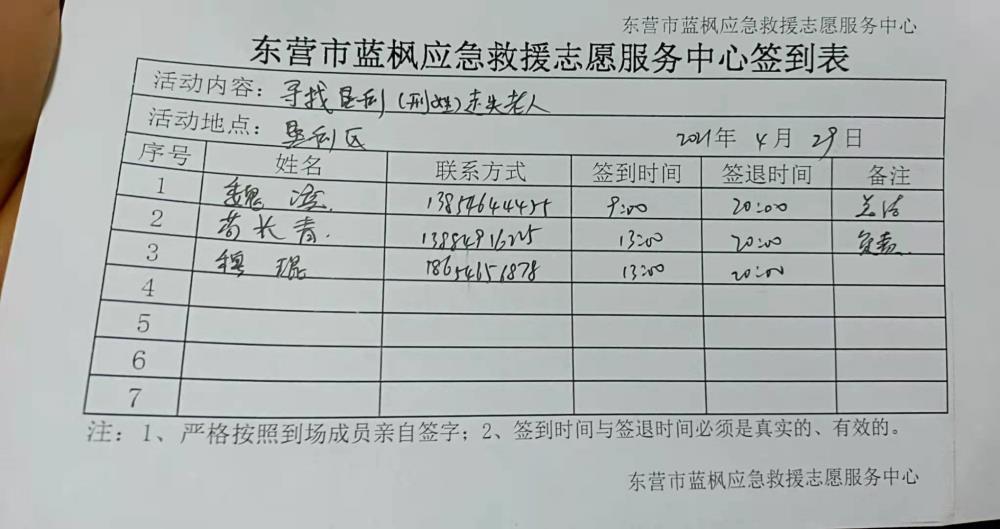 东营市蓝枫应急救援志愿服务中心
东营市蓝枫应急救援志愿服务中心签到表
活动内容：寻找垦利（刑姓）走失老人
活动地点：垦利区 2021年4月29日
序号 姓名 联系方式 签到时间 签退时间 备注
1 魏 13854644455 9:00 20:00
2 苟长青 13884916225 13:00 20:00
3 穆琨 18654651878 13:00 20:00
4
5
6
7
注：1、严格按照到场成员亲自签字；2、签到时间与签退时间必须是真实的、有效的。
东营市蓝枫应急救援志愿服务中心